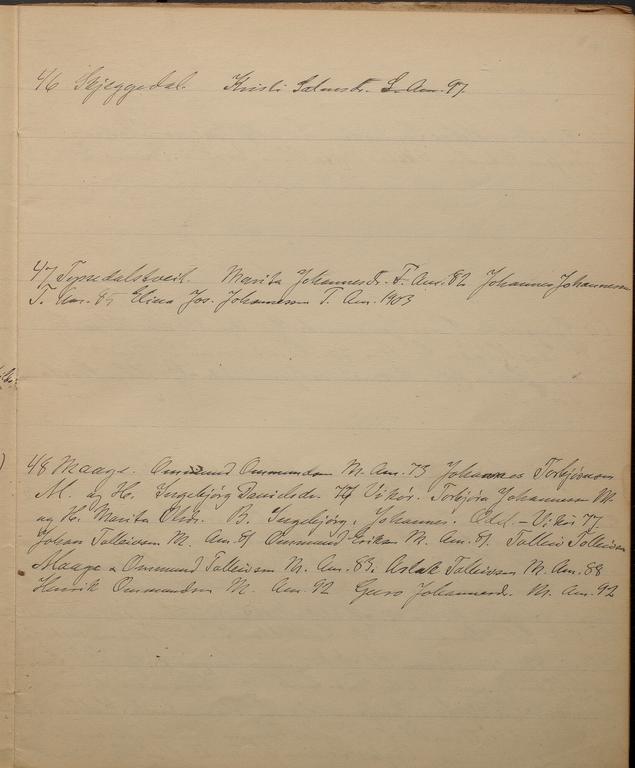 46 Skjeggedal. Kristi Salmdr. S. Am. 97.
47 Tyssedalstveit. Marita Johannesdr. T. Am. 82 Johannes Johannessen
T. Am. 85 Elina Jos. Johannessen T. Am. 1903
48 Maage. Ommund Ommundsen M. Am. 73 Johannes Torbjörnsen
M. og H. Ingebjörg Danielsdr. 77 Vikör. Torbjörn Johannessen M.
og H. Marita Olsdr. B. Ingebjörg, Johannes. Odd. - Vikör 77
Johan Tolleivsen M. Am. 81 Ommund Eriksen M. Am. 81. Tolleiv Tolleivsen
Maage & Ommund Tolleivsen M. Am. 83. Aslak Tolleivsen M. Am. 88
Henrik Ommundsen M. Am. 92 Guro Johannesd. M. Am. 92